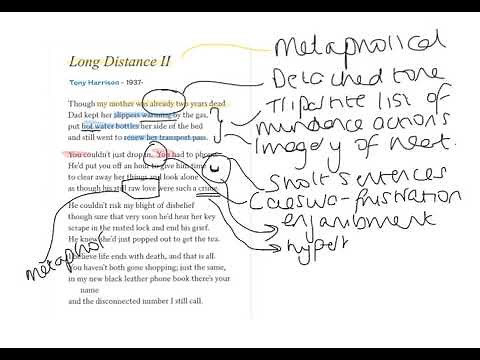 Long Distance II
Metaphorical
Tony Harrison - 1937-
Detached tone
Though my mother was already two years dead
Dad kept her slippers warming by the gas,
put hot water bottles her side of the bed
and still went to renew her transport pass.
Tripartite list of
mundane actions
Imagery of heat.
You couldn't just drop in. You had to phone.
He'd put you off an hour to give him time
to clear away her things and look alone
as though his still raw love were such a crime.
Short sentences
Caesura - frustration
enjambment
He couldn't risk my blight of disbelief
though sure that very soon he'd hear her key
scrape in the rusted lock and end his grief.
He knew she'd just popped out to get the tea.
metaphor
I believe life ends with death, and that is all.
You haven't both gone shopping; just the same,
in my new black leather phone book there's your
name
and the disconnected number I still call.